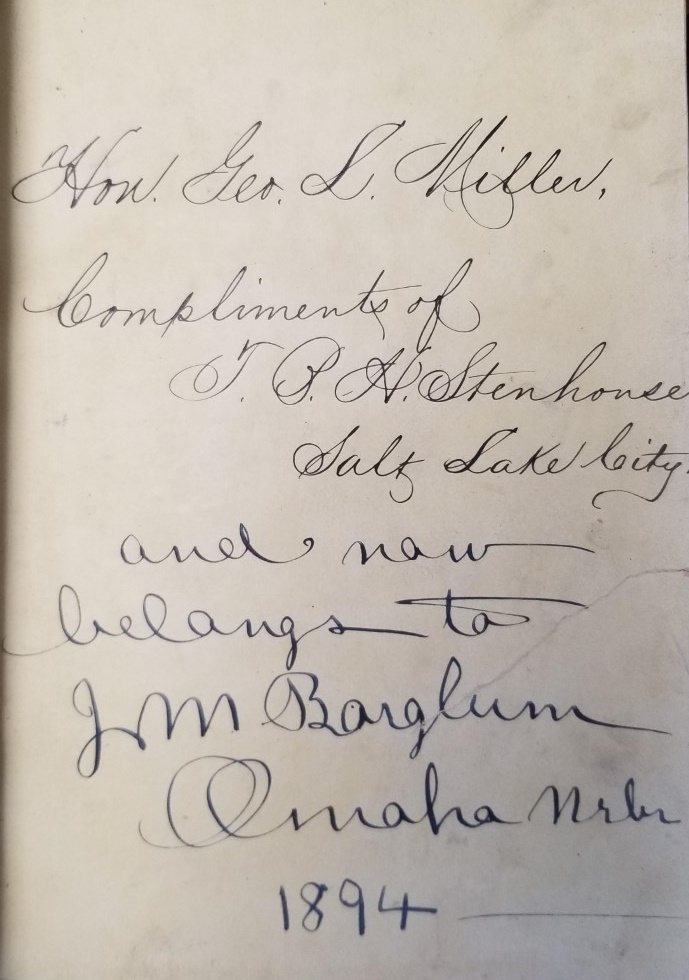 Hon. Geo. L. Miller,
Compliments of
T. B. H. Stenhouse
Salt Lake City.
and now
belongs to
J M Borglum
Omaha Nebr
1894